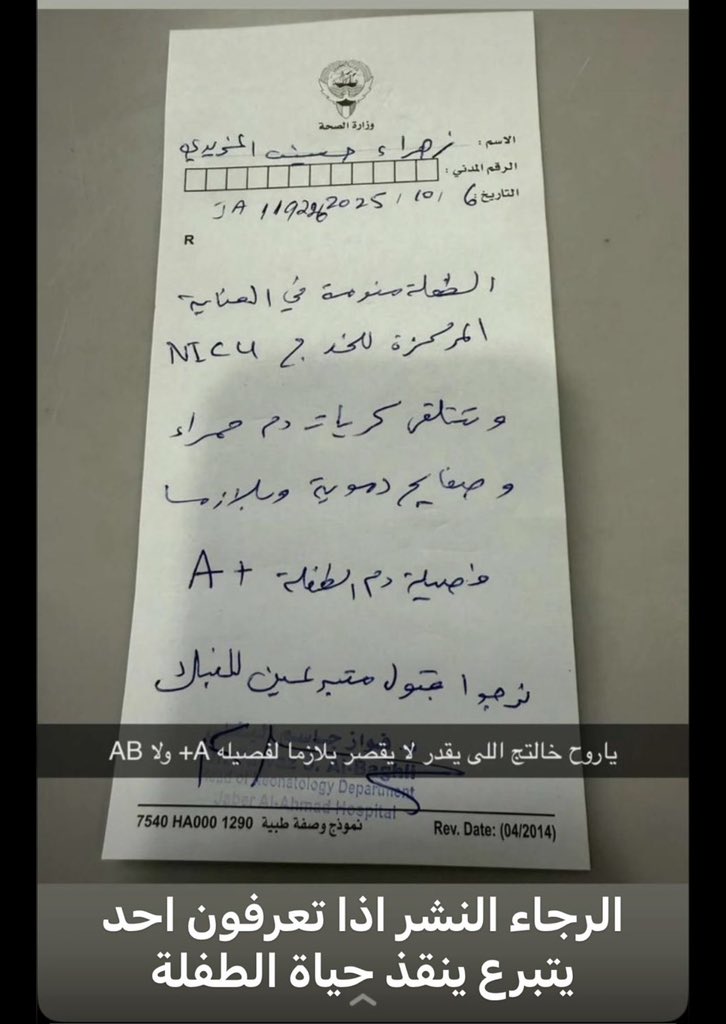 وزارة الصحة
الاسم : زهراء حسين
الرقم المدني :
التاريخ : 6 / 10 / 2025 JA
R
الطفلة منومة في العناية
المركزة للخدج NICU
وتتلقى كريات دم حمراء
وصفايح دموية وبلازما
فصيلة دم الطفلة A+
نرجوا قبول متبرعين للبنك
فواز
ياروح خالتج اللى يقدر لا يقصر بلازما لفصيله A+ ولا AB
Al-Baghli
Head of Neonatology Department
Jaber Al-Ahmad Hospital
7540 HA000 1290 نموذج وصفة طبية Rev. Date: (04/2014)
الرجاء النشر اذا تعرفون احد
يتبرع ينقذ حياة الطفلة